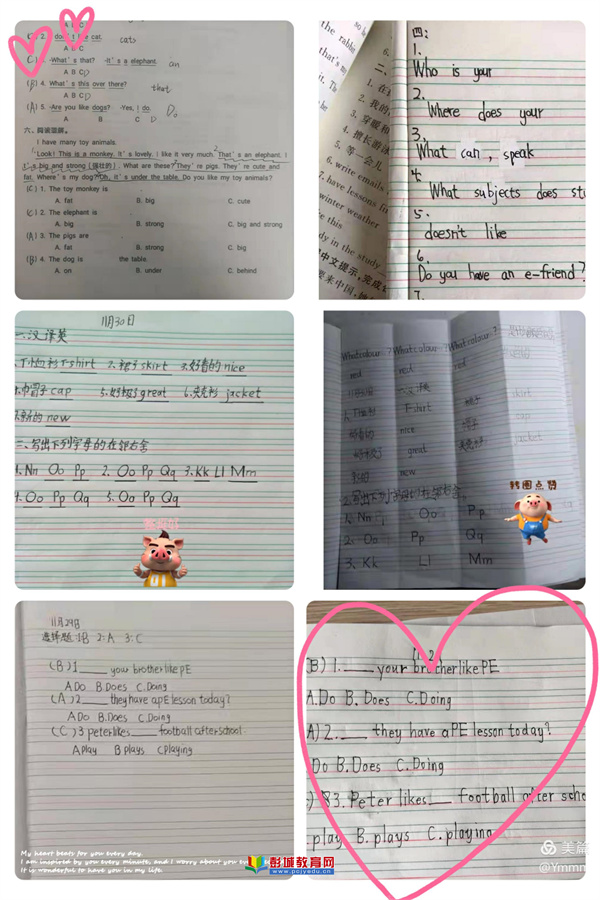 A B C
2. I don't like cat. cats
A B C
(C) 3. -What's that? -It's a elephant. an
A B C D
(B) 4. What's this over there? that
A B C D
(A) 5. -Are you like dogs? -Yes, I do. Do
A B C D
六、阅读理解。
I have many toy animals.
Look! This is a monkey. It's lovely. I like it very much. That's an elephant. I
t's big and strong (强壮的). What are these? They're pigs. They're cute and
fat. Where's my dog? Oh, it's under the table. Do you like my toy animals?
(C) 1. The toy monkey is
A. fat B. big C. cute
(C) 2. The elephant is
A. big B. strong C. big and strong
(A) 3. The pigs are
A. fat B. strong C. big
(B) 4. The dog is the table.
A. on B. under C. behind
the rabbi
that's m
it. The
be
二、
1. 在
2. 我的
3. 穿暖和
4. 擅长游泳
5. 等一会儿
6. write emails
7. have lessons
winter weather
like this
dy in the study
中文提示,完成
要来中国,
四:
1.
Who is your
2.
Where does your
3.
What can, speak
4.
What subjects does st
5.
doesn't like
6.
Do you have an e-friend?
7.
11月30日
一、汉译英
1.T恤衫 T-shirt 2.裙子 skirt 3.好看的 nice
4.帽子 cap 5.好极了 great 6.夹克衫 jacket
7.新的 new
二、写出下列字母的左邻右舍
1. Nn Oo Pp 2. Oo Pp Qq 3. Kk Ll Mm
4. Oo Pp Qq 5. Oo Pp Qq
What colour...? What colour...? What colour...?
red red red
T恤衫 T-shirt 裙子 skirt
好看的 nice 帽子 cap
好极了 great 夹克衫 jacket
新的 new
2.写出下列字母的左邻右舍
1. Nn Oo Pp
2. Oo Pp Qq
3. Kk Ll Mm
转圈点赞
11月29日
选择题:1.B 2:A 3:C
(B) 1 ____ your brother like PE
A Do B. Does C. Doing
(A) 2 ____ they have a PE lesson today?
A Do B. Does C. Doing
(C) 3 peter likes ____ football after school.
A play B plays C playing
My heart beats for you every day.
I am inspired by you every minute, and I worry about you eve
It is wonderful to have you in my life.
B) 1. ____ your brother like PE
A. Do B. Does C. Doing
A) 2. ____ they have a PE lesson today?
Do B. Does C. Doing
3. Peter likes __ football after scho
play B. plays C. playing
彭城教育网
www.pcjyedu.cn
美篇
@Ymmm